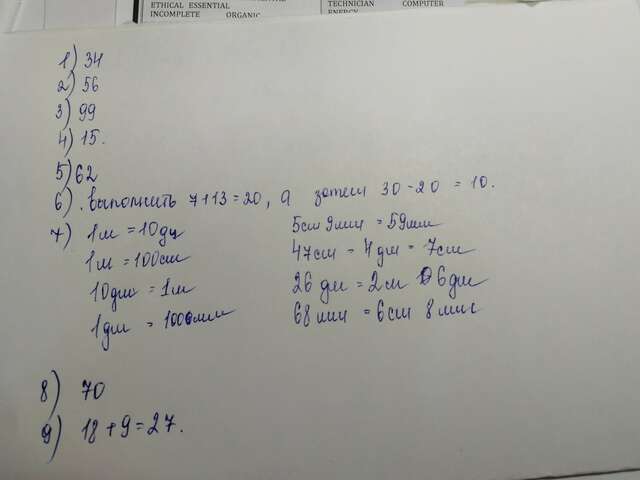 ETHICAL ESSENTIAL
INCOMPLETE ORGANIC
TECHNICIAN COMPUTER
ENERGY
1) 34
2) 56
3) 99
4) 15.
5) 62
6). выполнить 7+13=20, а затем 30-20=10.
7) 1м = 10дц
1м = 100см
10дм = 1м
1дм = 1000мм
5см 9мм = 59мм
47см = 4дм = 7см
26дм = 2м 6дм
68мм = 6см 8мм
8) 70
9) 18+9=27.